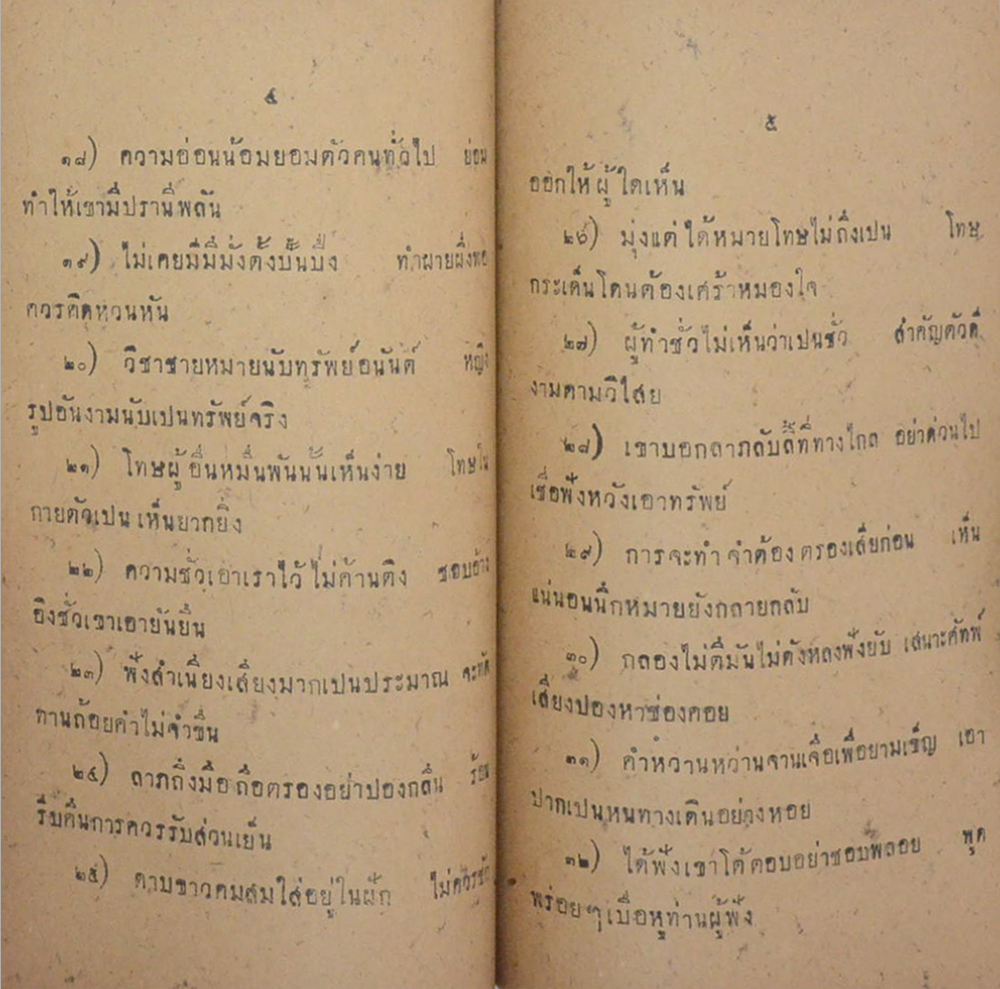 ๔
๑๘) ความอ่อนน้อมยอมตัวคนทั่วไป ย่อม
ทำให้เขามีปรานีพลัน
๑๙) ไม่เคยมีมีมั่งตั้งปั้นปึ่ง ทำผายผึ่งพอ
ควรคิดหวนหัน
๒๐) วิชาชายหมายนับทรัพย์อนันต์ หญิง
รูปอันงามนับเปนทรัพย์จริง
๒๑) โทษผู้อื่นหมื่นพันนั้นเห็นง่าย โทษใน
กายตัวเปน เห็นยากยิ่ง
๒๒) ความชั่วเอาเราไว้ ไม่ค้านติง ชอบอ้าง
อิงชั่วเขาเอายันยืน
๒๓) ฟังสำเนียงเสียงมากเปนประมาณ จะทัด
ทานถ้อยคำไม่จำขืน
๒๔) ลาภถึงมือ ถือตรองอย่าปองกลืน ร้อน
รีบคืนการควรรับส่วนเย็น
๒๕) ดาบขาวคมสมใส่อยู่ในฝัก ไม่ควรชัก
๕
ออกให้ ผู้ ใดเห็น
๒๖) มุ่งแต่ ได้หมายโทษไม่ถึงเปน โทษ
กระเด็นโดนต้องเศร้าหมองใจ
๒๗) ผู้ทำชั่วไม่เห็นว่าเปนชั่ว สำคัญตัวดี
งามตามวิไสย
๒๘) เขาบอกลาภลับลี้ที่ทางไกล อย่าด่วนไป
เชื่อฟังหวังเอาทรัพย์
๒๙) การจะทำ จำต้อง ตรองเสียก่อน เห็น
แน่นอนนึกหมายยังกลายกลับ
๓๐) กลองไม่ตีมันไม่ดังหลงฟังยับ เสนาะศัพท์
เสียงปองหาช่องคอย
๓๑) คำหวานหว่านจานเจือเพื่อยามเข็ญ เอา
ปากเปนหนทางเดินอย่างหอย
๓๒) ได้ฟังเขาโต้ตอบอย่าชอบพลอย พูด
พร่อย ๆ เบื่อหูท่านผู้ฟัง